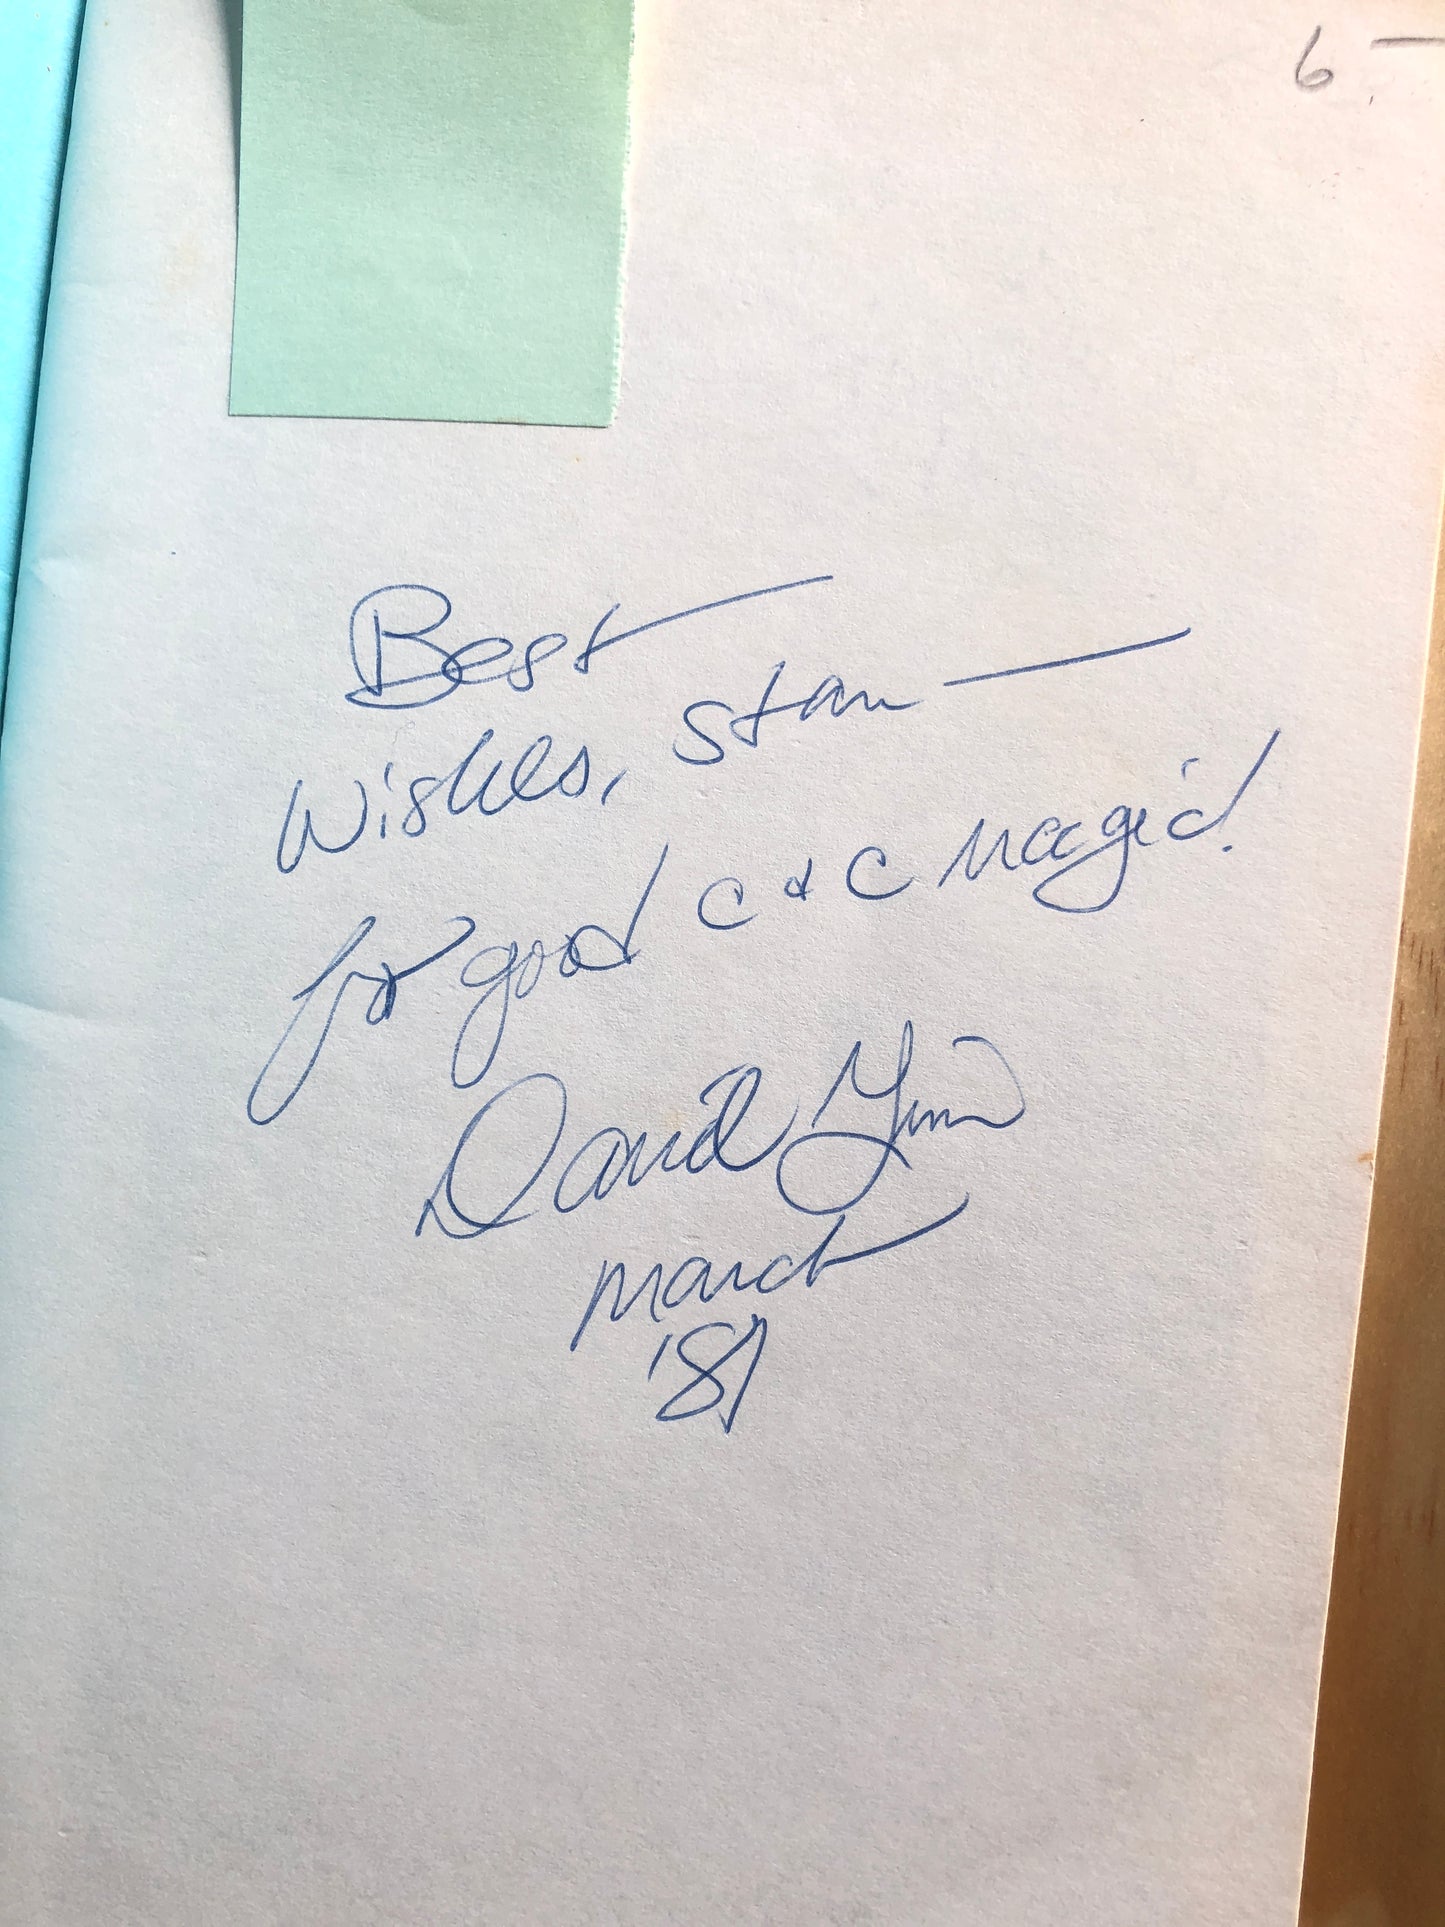 6 —
Best
Wishes, Stan —
for good C & C Magic!
David Ginn
March
'81